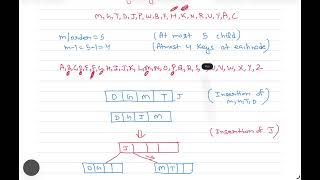 M, G, T, D, J, P, W, B, F, H, K, N, R, U, Y, A, C
m/order = 5 (At most 5 child)
m-1 = 5-1 = 4 (Atmost 4 keys at each node)
D G M T J (Insertion of M, G, T, D
D G J M
(Insertion of J)
J
D G M T